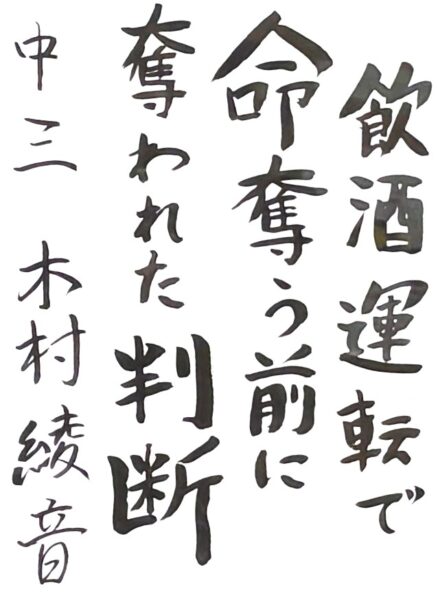 飲酒運転で
命奪う前に
奪われた判断
中三 木村綾音